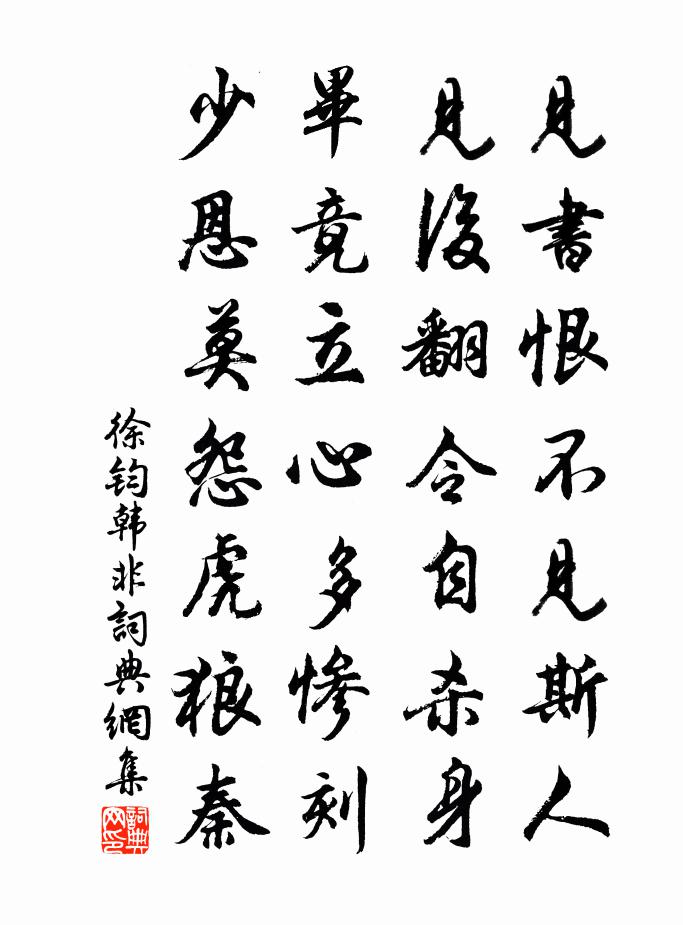 見書恨不見斯人
見後翻令自殺身
畢竟立心多慘刻
少恩莫怨虎狼秦
徐鈞韓非詞典網集
詞典网印